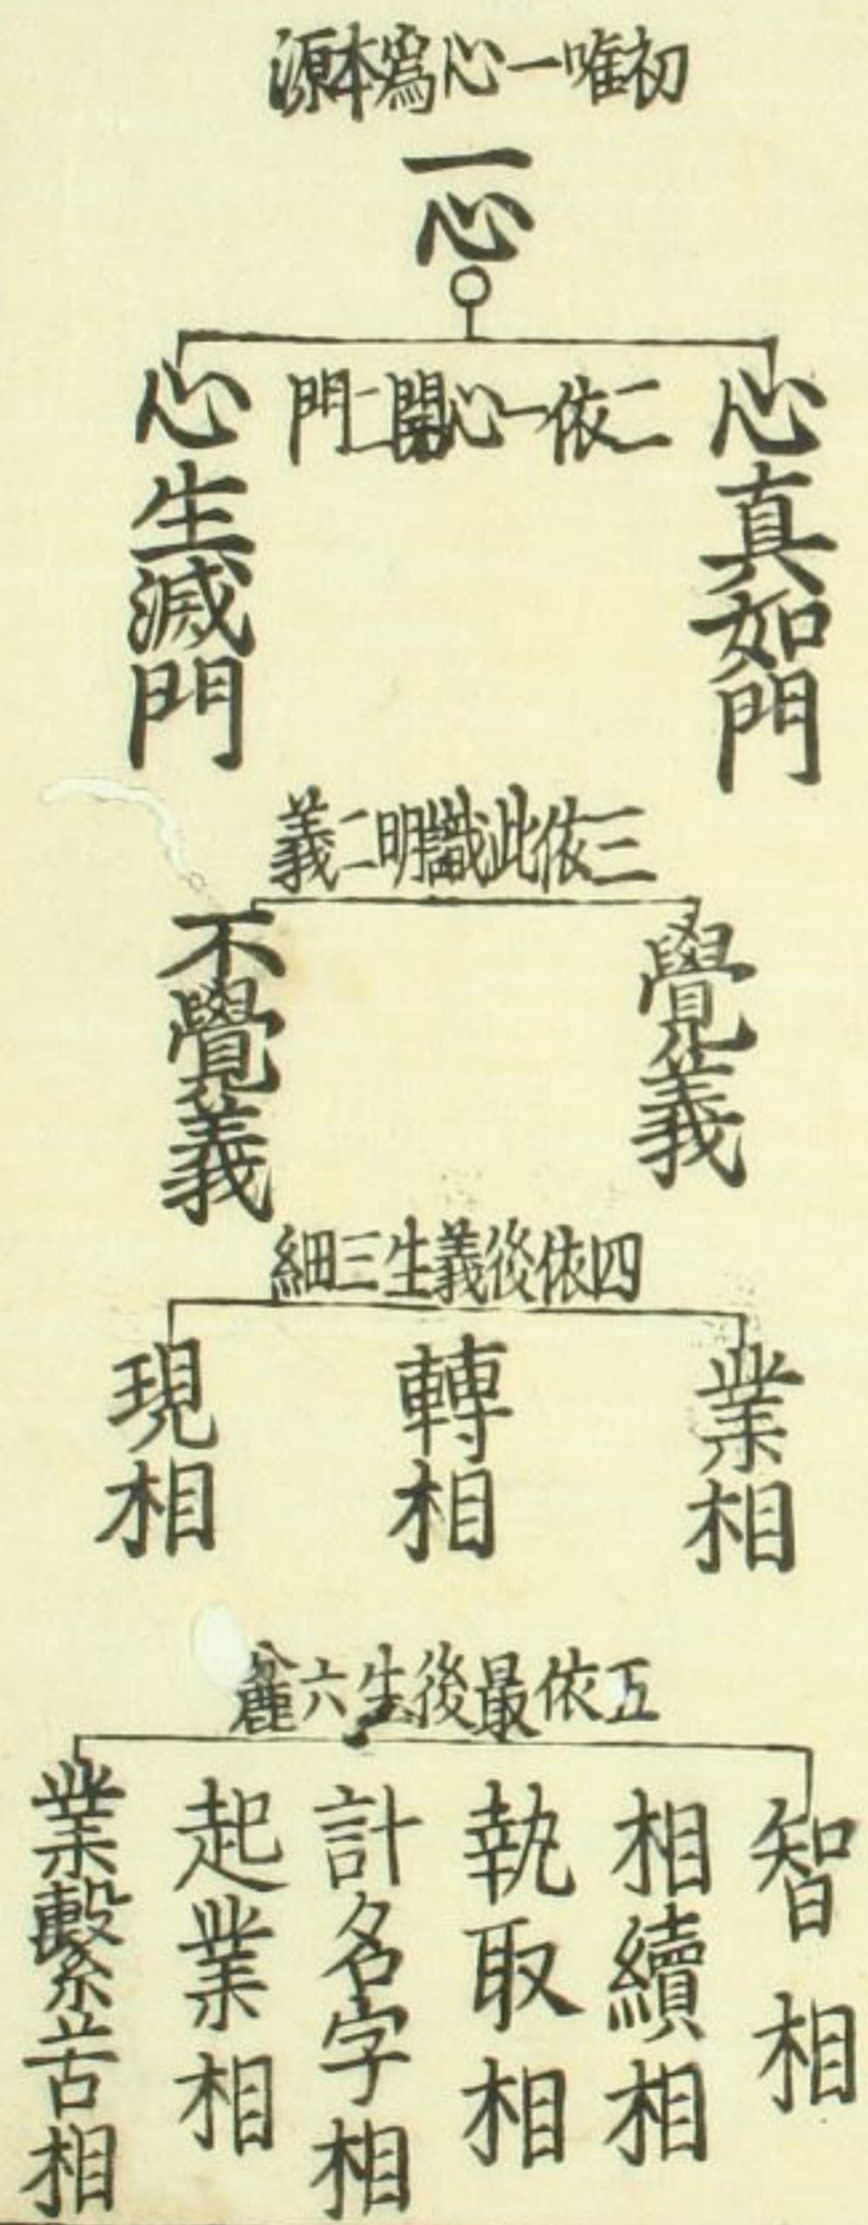 初唯一心爲本源
一心
二依一心開二門
心真如門
心生滅門
三依此識明二義
覺義
不覺義
四依後義生三細
業相
轉相
現相
五依最後生六麤
智相
相續相
執取相
計名字相
起業相
業繫苦相